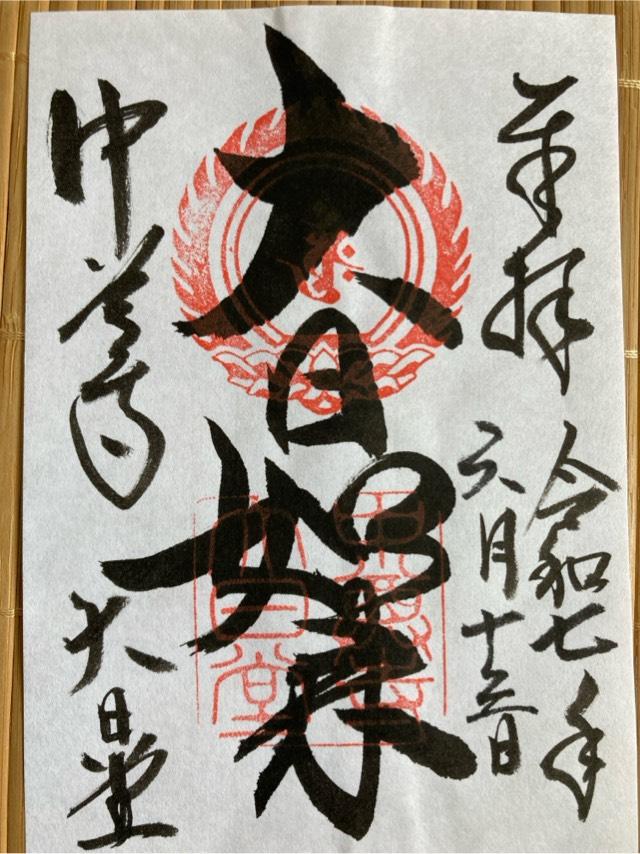 奉拝
令和七年
六月十三日
大日如来
中尊寺
大日堂
大日堂